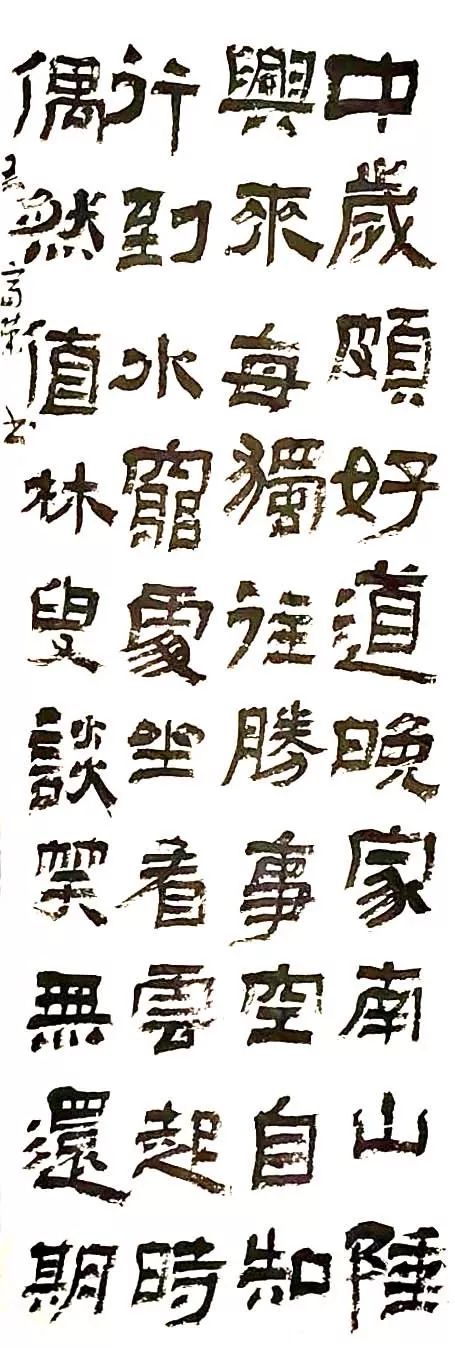 中歲頗好道晚家南山陲
興來每獨往勝事空自知
行到水窮處坐看雲起時
偶然值林叟談笑無還期
富荣书